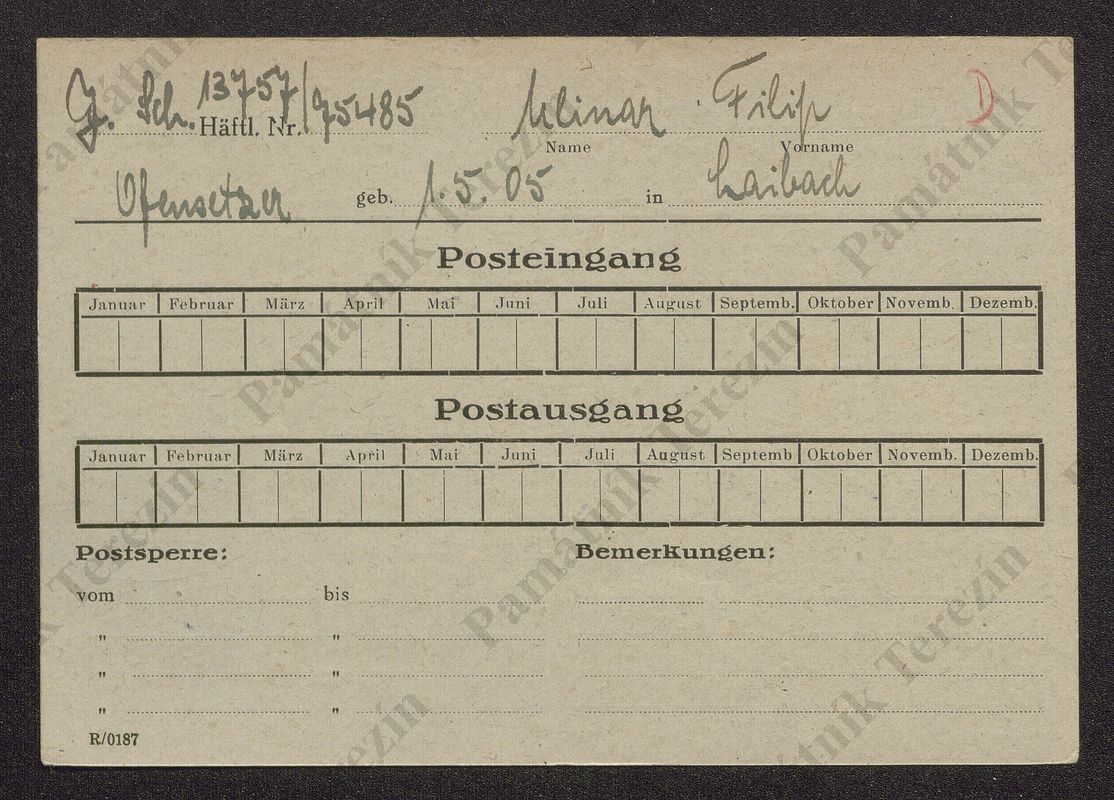 J. Sch. 13757/75485 Mlinar Filip D
Häftl. Nr. Name Vorname
Ofensetzer geb. 1.5.05 in Laibach
Posteingang
Januar Februar März April Mai Juni Juli August Septemb. Oktober Novemb. Dezemb.
Postausgang
Januar Februar März April Mai Juni Juli August Septemb Oktober Novemb. Dezemb.
Postsperre: Bemerkungen:
vom bis
" "
" "
" "
R/0187
Památník Terezín